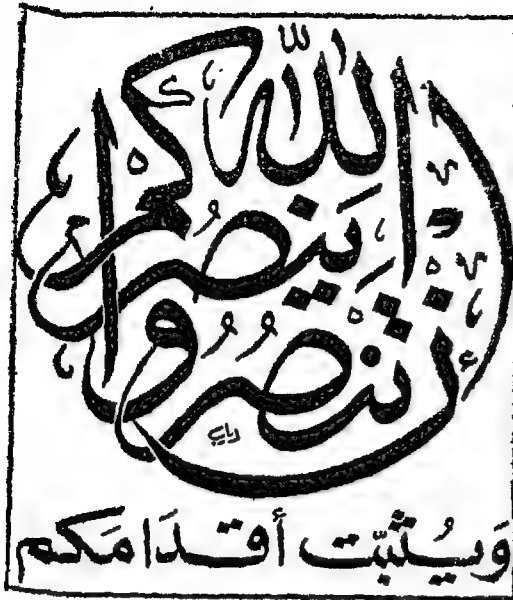 إن تنصروا الله ينصركم
وَيُثَبِّت أقدَامَكم